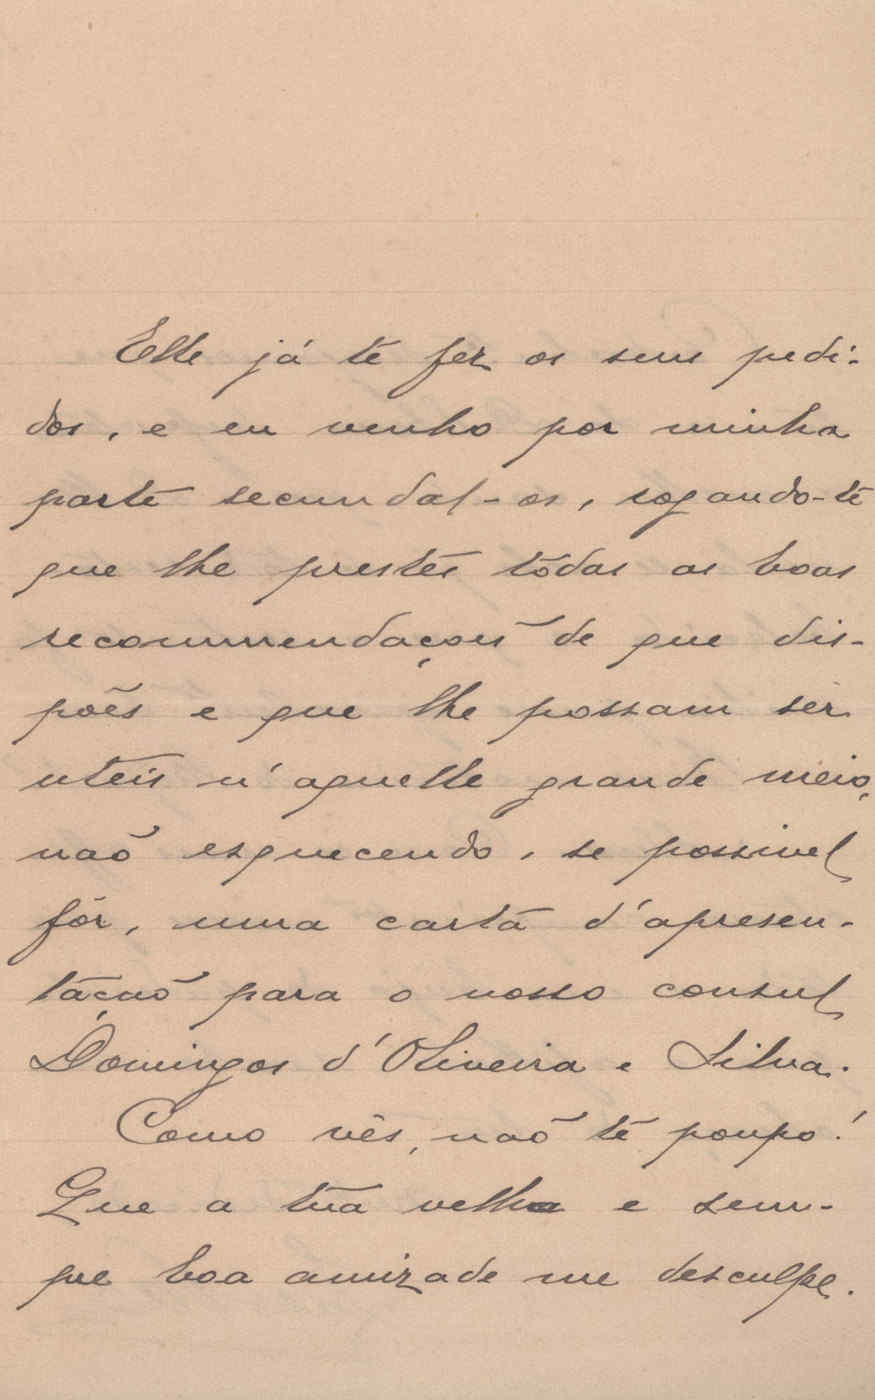 Elle já te fez os seus pedi-
dos, e eu venho por minha
parte secundal-os, rogando-te
que lhe prestes tôdas as boas
recommendações de que dis-
pões e que lhe possam ser
uteis n'aquelle grande meio,
não esquecendo, se possivel
fôr, uma carta d'apresen-
tação para o nosso consul
Domingos d'Oliveira e Silva.
Como vês, não te poupo!
Que a tua velha e sem-
pre boa amizade me desculpe.